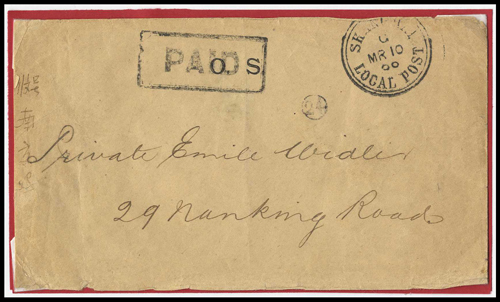 PAID
O. S
SHANGHAI
G
MR 10
LOCAL POST
Private Emile Widler
29 Nanking Road